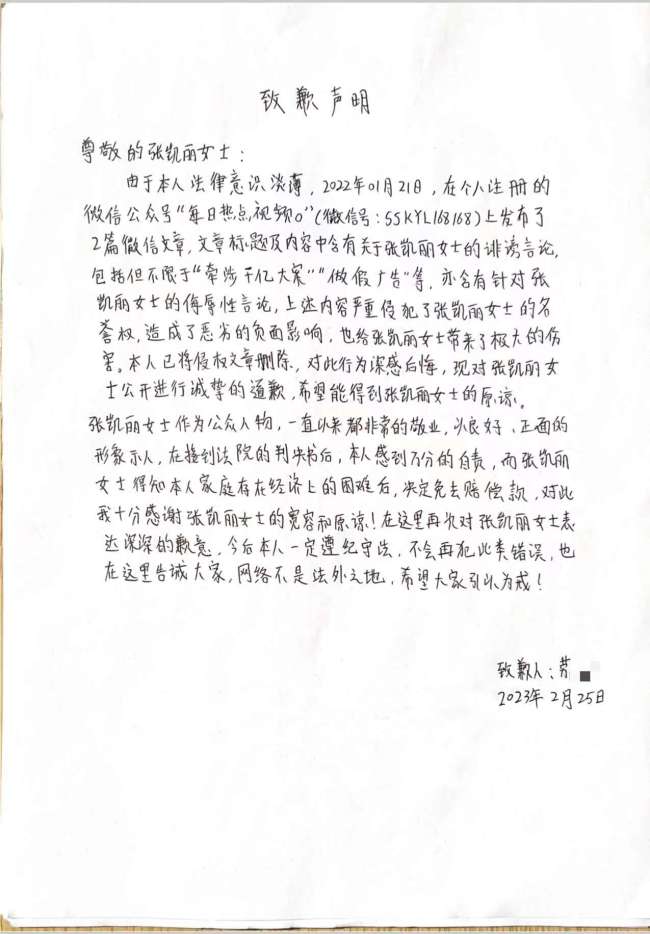 致歉声明
尊敬的张凯丽女士：
由于本人法律意识淡薄，2022年01月21日，在个人注册的
微信公众号“每日热点视频o”(微信号：SSKYL168168)上发布了
2篇微信文章，文章标题及内容中含有关于张凯丽女士的诽谤言论，
包括但不限于“牵涉千亿大案”“做假广告”等，亦含有针对张
凯丽女士的侮辱性言论，上述内容严重侵犯了张凯丽女士的名
誉权，造成了恶劣的负面影响，也给张凯丽女士带来了极大的伤
害。本人已将侵权文章删除，对此行为深感后悔，现对张凯丽女
士公开进行诚挚的道歉，希望能得到张凯丽女士的原谅。
张凯丽女士作为公众人物，一直以来都非常的敬业，以良好、正面的
形象示人，在接到法院的判决书后，本人感到万分的自责，而张凯丽
女士得知本人家庭存在经济上的困难后，决定免去赔偿款，对此
我十分感谢张凯丽女士的宽容和原谅！在这里再次对张凯丽女士表
达深深的歉意，今后本人一定遵纪守法，不会再犯此类错误，也
在这里告诫大家，网络不是法外之地，希望大家引以为戒！
致歉人：苏
2023年2月25日